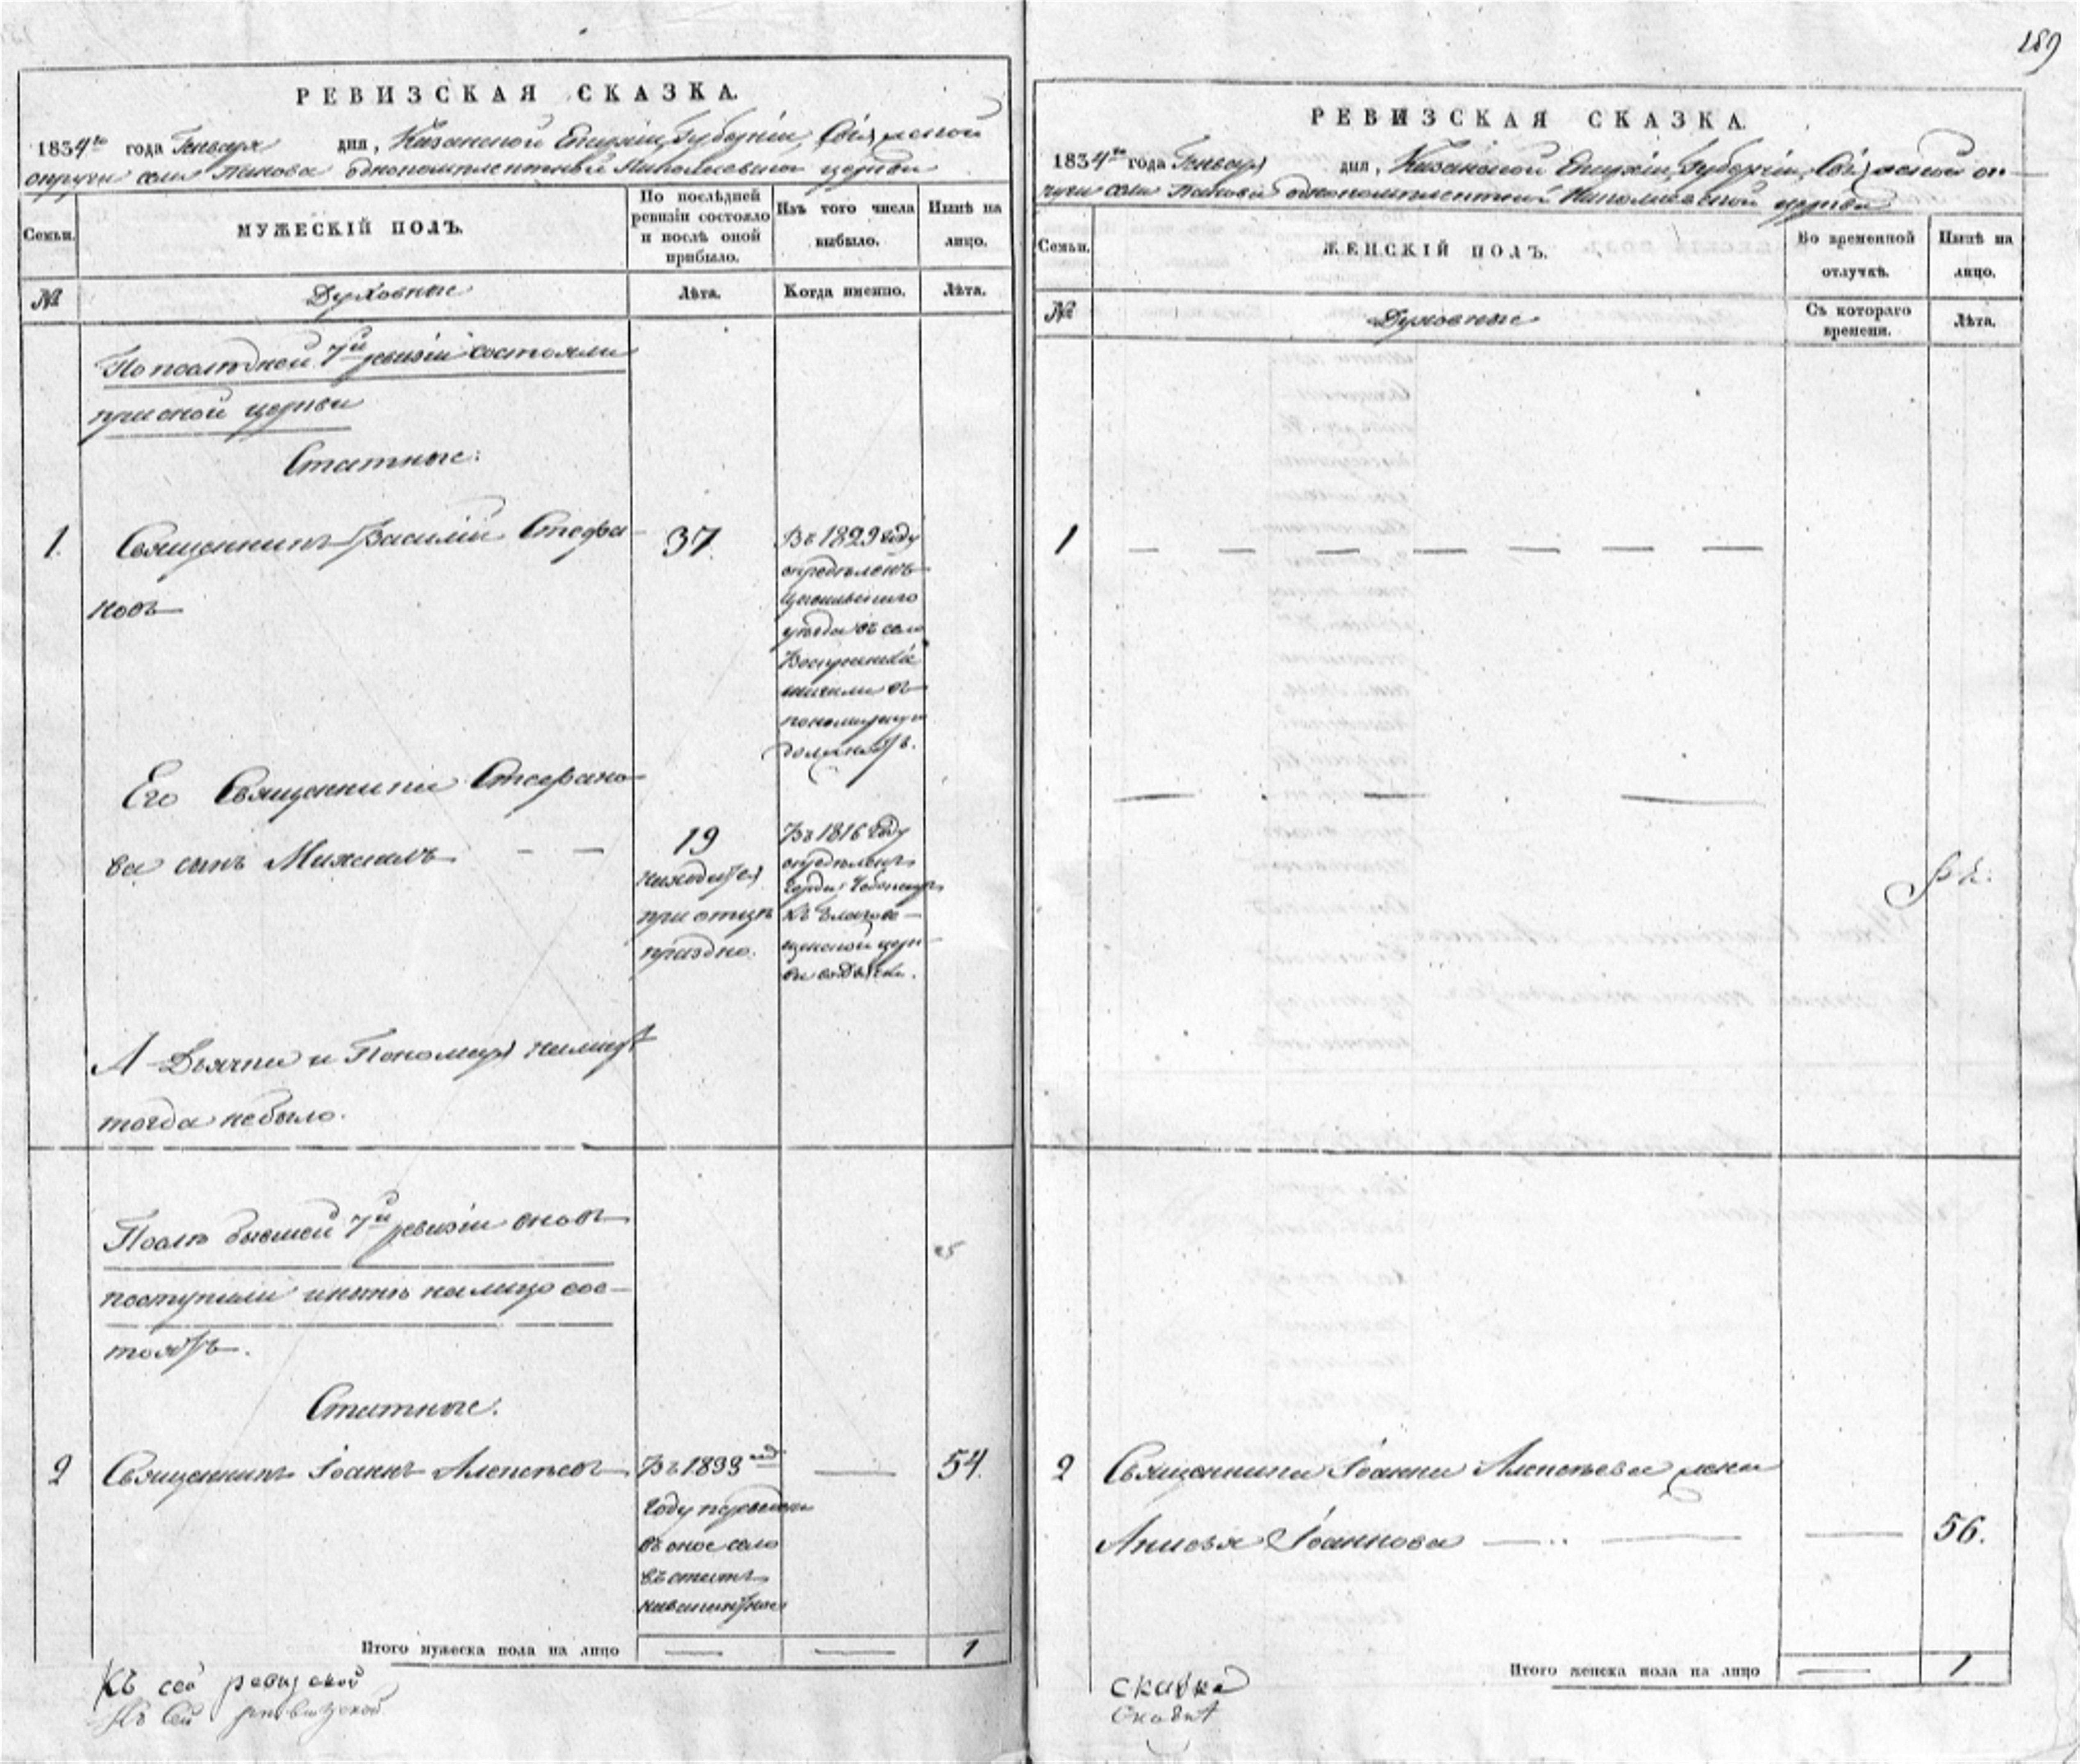 189
РЕВИЗСКАЯ СКАЗКА.
1834го года Генваря дня, Казанской Епархіи, Губерніи, Свіяжской
округи села Танкова однокомплектной Николаевской церкви
Семьи.
МУЖЕСКІЙ ПОЛЪ.
По послѣдней ревизіи состояло и послѣ оной прибыло.
Изъ того числа выбыло.
Нынѣ на лицо.
№
Духовные
Лѣта.
Когда именно.
Лѣта.
По последней 7й ревизіи состояли
при оной церкви
Статные:
1. Священникъ Василій Стефа-
новъ
37.
Въ 1829 году
определенъ
Цывильскаго
уѣзда въ село
въ
пономарскую
должность.
Его Священника Стефано-
ва сынъ Михаилъ — —
19
находится
при отцѣ
праздно.
Въ 1816 году
опредѣленъ
города Чебоксаръ
къ Благове-
щенской церк-
ви во дьячки.
А Дьячка и Пономаря налицо
тогда небыло.
Послѣ бывшей 7й ревизіи вновь
поступили и нынѣ налицо сос-
тоятъ.
Статные.
2 Священникъ Іоаннъ Алексѣевъ
Въ 1833мъ
году переведенъ
въ оное село
въ статъ
—
54.
Итого мужеска пола на лицо — — 1
Къ сей ревизской
Къ сей ревизской
РЕВИЗСКАЯ СКАЗКА.
1834го года Генваря дня, Казанской Епархіи, Губерніи, Свіяжской ок-
руги села Танкова однокомплектной Николаевской церкви
Семьи.
ЖЕНСКІЙ ПОЛЪ.
Во временной отлучкѣ.
Нынѣ на лицо.
№
Духовные
Съ котораго времени.
Лѣта.
1 — — — — — — —
— — —
2 Священника Іоанна Алексѣева жена
Анисья Іоаннова — — — 56.
Итого женска пола на лицо — 1
сказке
Сказкѣ